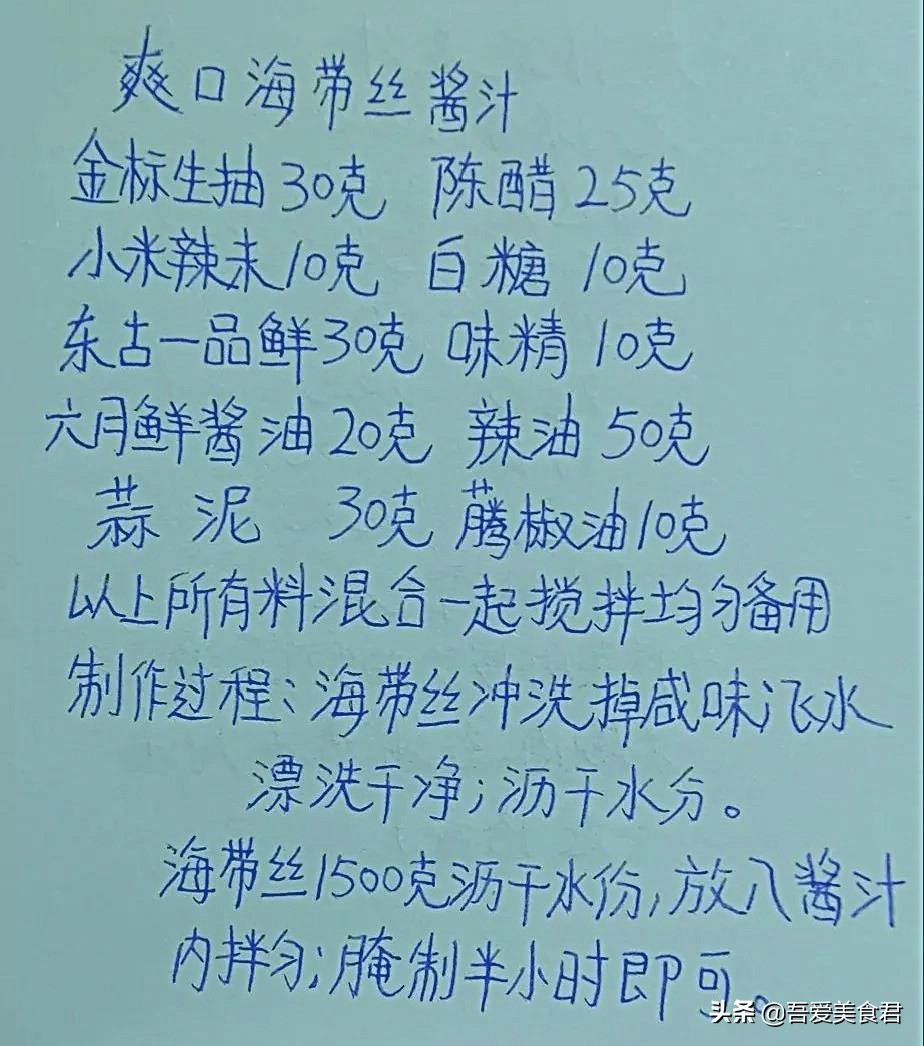 爽口海带丝酱汁
金标生抽30克 陈醋25克
小米辣末10克 白糖 10克
东古一品鲜30克 味精 10克
六月鲜酱油20克 辣油 50克
蒜 泥 30克 藤椒油10克
以上所有料混合一起搅拌均匀备用
制作过程:海带丝冲洗掉咸味汆水
漂洗干净;沥干水分。
海带丝1500克沥干水份,放入酱汁
内拌匀;腌制半小时即可。
头条 @吾爱美食君